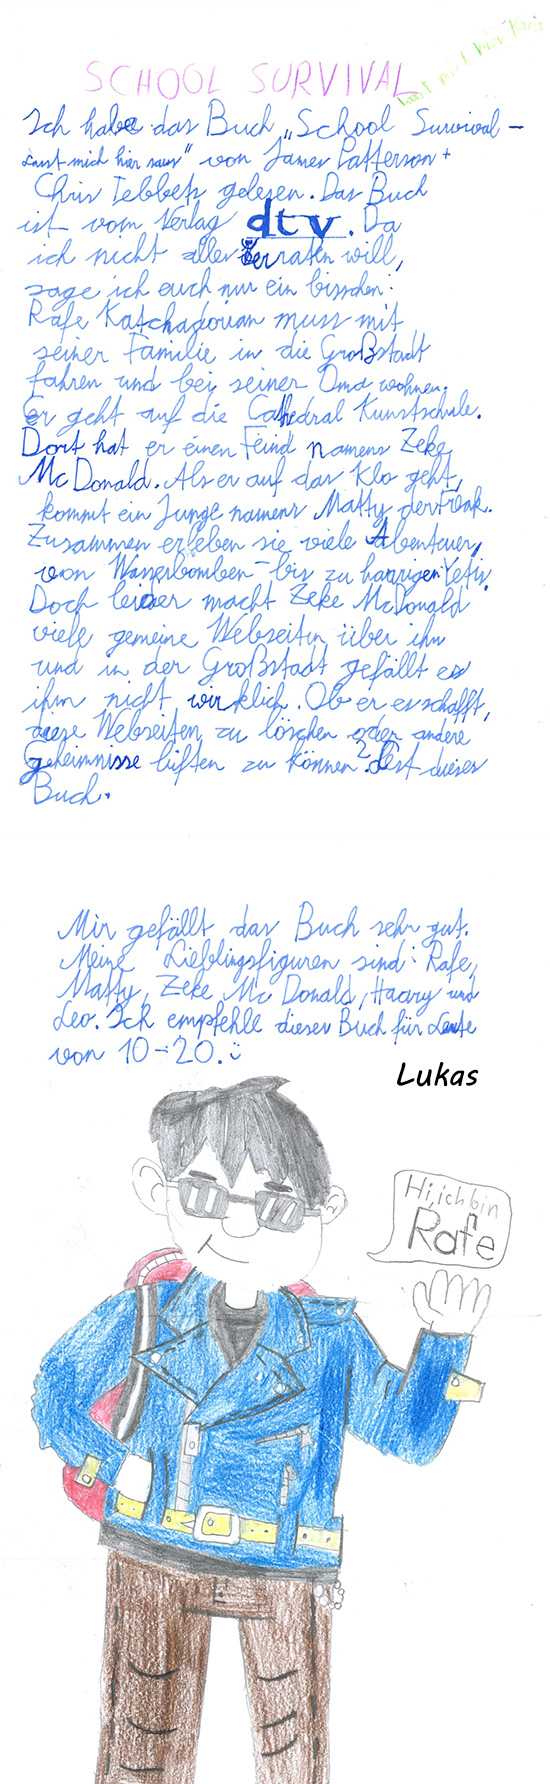 SCHOOL SURVIVAL
Lasst mich hier Raus
Ich habe das Buch „School Survival –
Lasst mich hier raus" von James Patterson +
Chris Tebbets gelesen. Das Buch
ist vom Verlag dtv. Da
ich nicht alles verraten will,
sage ich euch nur ein bisschen:
Rafe Katchadorian muss mit
seiner Familie in die Großstadt
fahren und bei seiner Oma wohnen.
Er geht auf die Cathedral Kunstschule.
Dort hat er einen Feind namens Zeke
McDonald. Als er auf das Klo geht,
kommt ein Junge namens Matty der Freak.
Zusammen erleben sie viele Abenteuer,
von Wasserbomben – bis zu haarigen Yetis.
Doch leider macht Zeke McDonald
viele gemeine Webseiten über ihn
und in der Großstadt gefällt es
ihm nicht wirklich. Ob er es schafft,
diese Webseiten zu löschen oder andere
Geheimnisse lüften zu können? Lest dieses
Buch.
Mir gefällt das Buch sehr gut.
Meine Lieblingsfiguren sind: Rafe,
Matty, Zeke Mc Donald, Haary und
Leo. Ich empfehle dieses Buch für Leute
von 10–20. :)
Lukas
Hi, ich bin
Rafe